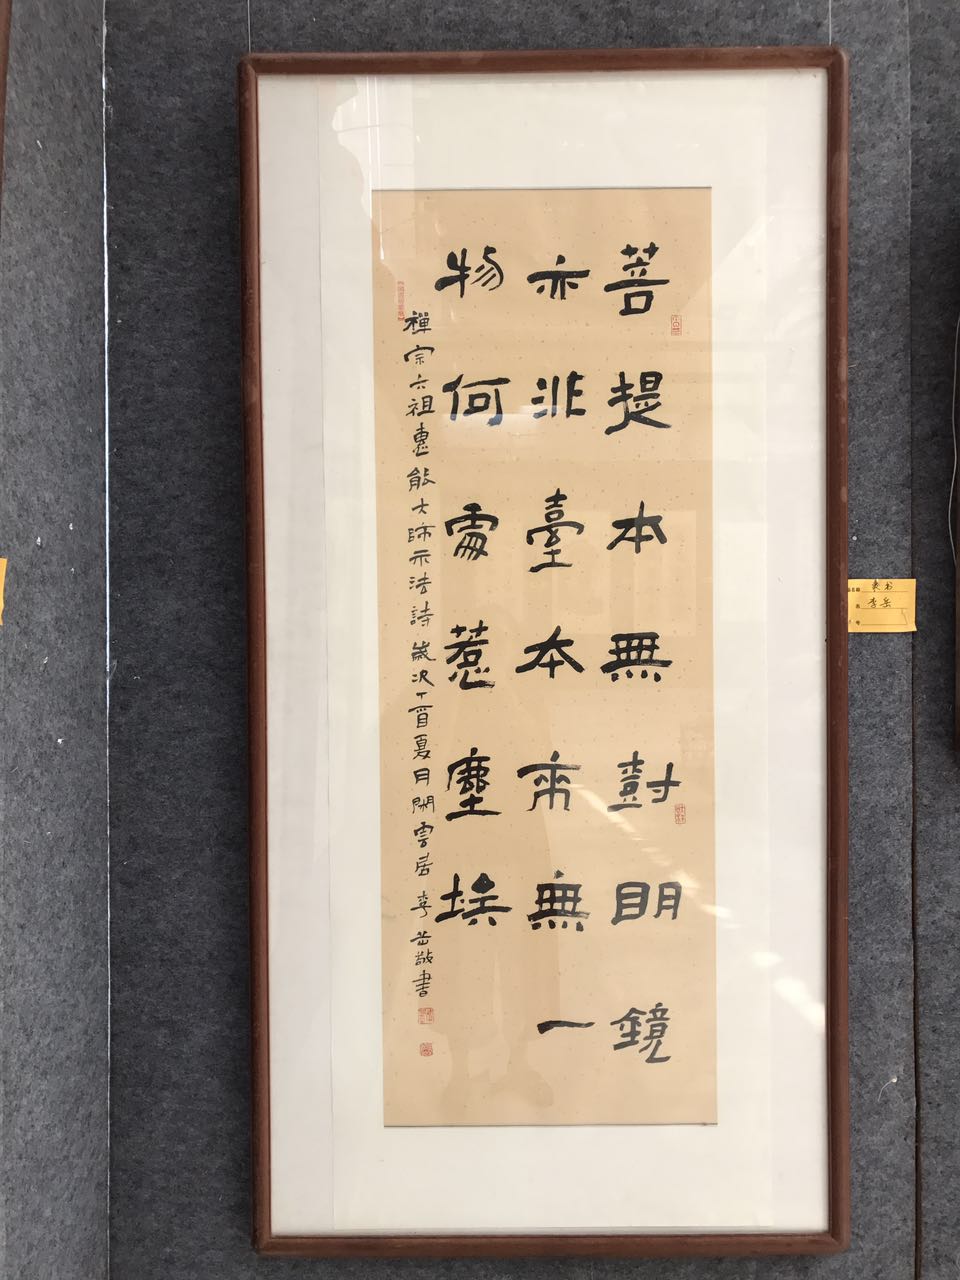 菩提本無尌明鏡
亦非臺本來無一
物何處惹塵埃
禪宗六祖惠能大師示法詩歲次丁酉夏月閑雲居李岳敬書
隶书
李岳